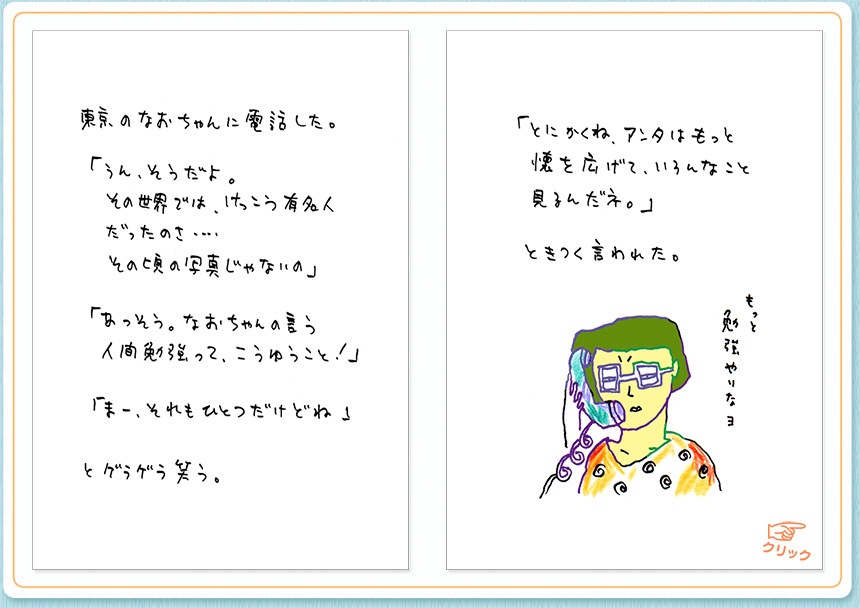 東京のなおちゃんに電話した。
「うん、そうだよ。
その世界では、けっこう有名人
だったのさ‥‥
その頃の写真じゃないの」
「あっそう。なおちゃんの言う
人間勉強って、こうゆうこと!」
「まー、それもひとつだけどね」
とゲラゲラ笑う。
「とにかくね、アンタはもっと
懐を広げて、いろんなこと
見るんだネ。」
ときつく言われた。
もっと
勉強やりなヨ
クリック